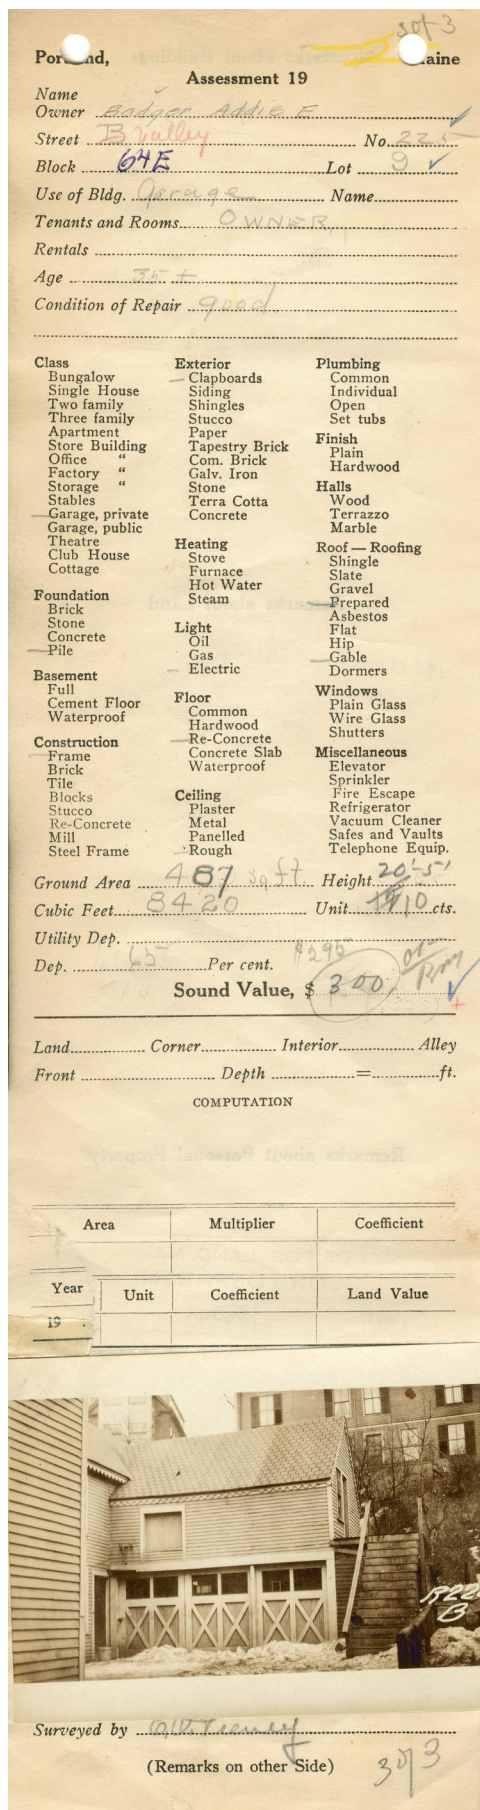 3 of 3
Portland, Maine
Assessment 19
Name
Owner Badger Addie E
Street B Valley No. 225
Block 64E Lot 9
Use of Bldg. Garage Name
Tenants and Rooms OWNER
Rentals
Age 35 +
Condition of Repair good
Class
Bungalow
Single House
Two family
Three family
Apartment
Store Building
Office "
Factory "
Storage "
Stables
Garage, private
Garage, public
Theatre
Club House
Cottage
Foundation
Brick
Stone
Concrete
Pile
Basement
Full
Cement Floor
Waterproof
Construction
Frame
Brick
Tile
Blocks
Stucco
Re-Concrete
Mill
Steel Frame
Exterior
Clapboards
Siding
Shingles
Stucco
Paper
Tapestry Brick
Com. Brick
Galv. Iron
Stone
Terra Cotta
Concrete
Heating
Stove
Furnace
Hot Water
Steam
Light
Oil
Gas
Electric
Floor
Common
Hardwood
Re-Concrete
Concrete Slab
Waterproof
Ceiling
Plaster
Metal
Panelled
Rough
Plumbing
Common
Individual
Open
Set tubs
Finish
Plain
Hardwood
Halls
Wood
Terrazzo
Marble
Roof — Roofing
Shingle
Slate
Gravel
Prepared
Asbestos
Flat
Hip
Gable
Dormers
Windows
Plain Glass
Wire Glass
Shutters
Miscellaneous
Elevator
Sprinkler
Fire Escape
Refrigerator
Vacuum Cleaner
Safes and Vaults
Telephone Equip.
Ground Area 487 sq ft. Height 20'-5'
Cubic Feet 8420 Unit 10 cts.
Utility Dep.
Dep. 65 Per cent. $295
Sound Value, $ 300
Land Corner Interior Alley
Front Depth = ft.
COMPUTATION
Area Multiplier Coefficient
Year Unit Coefficient Land Value
19
B
Surveyed by
(Remarks on other Side)
3 of 3